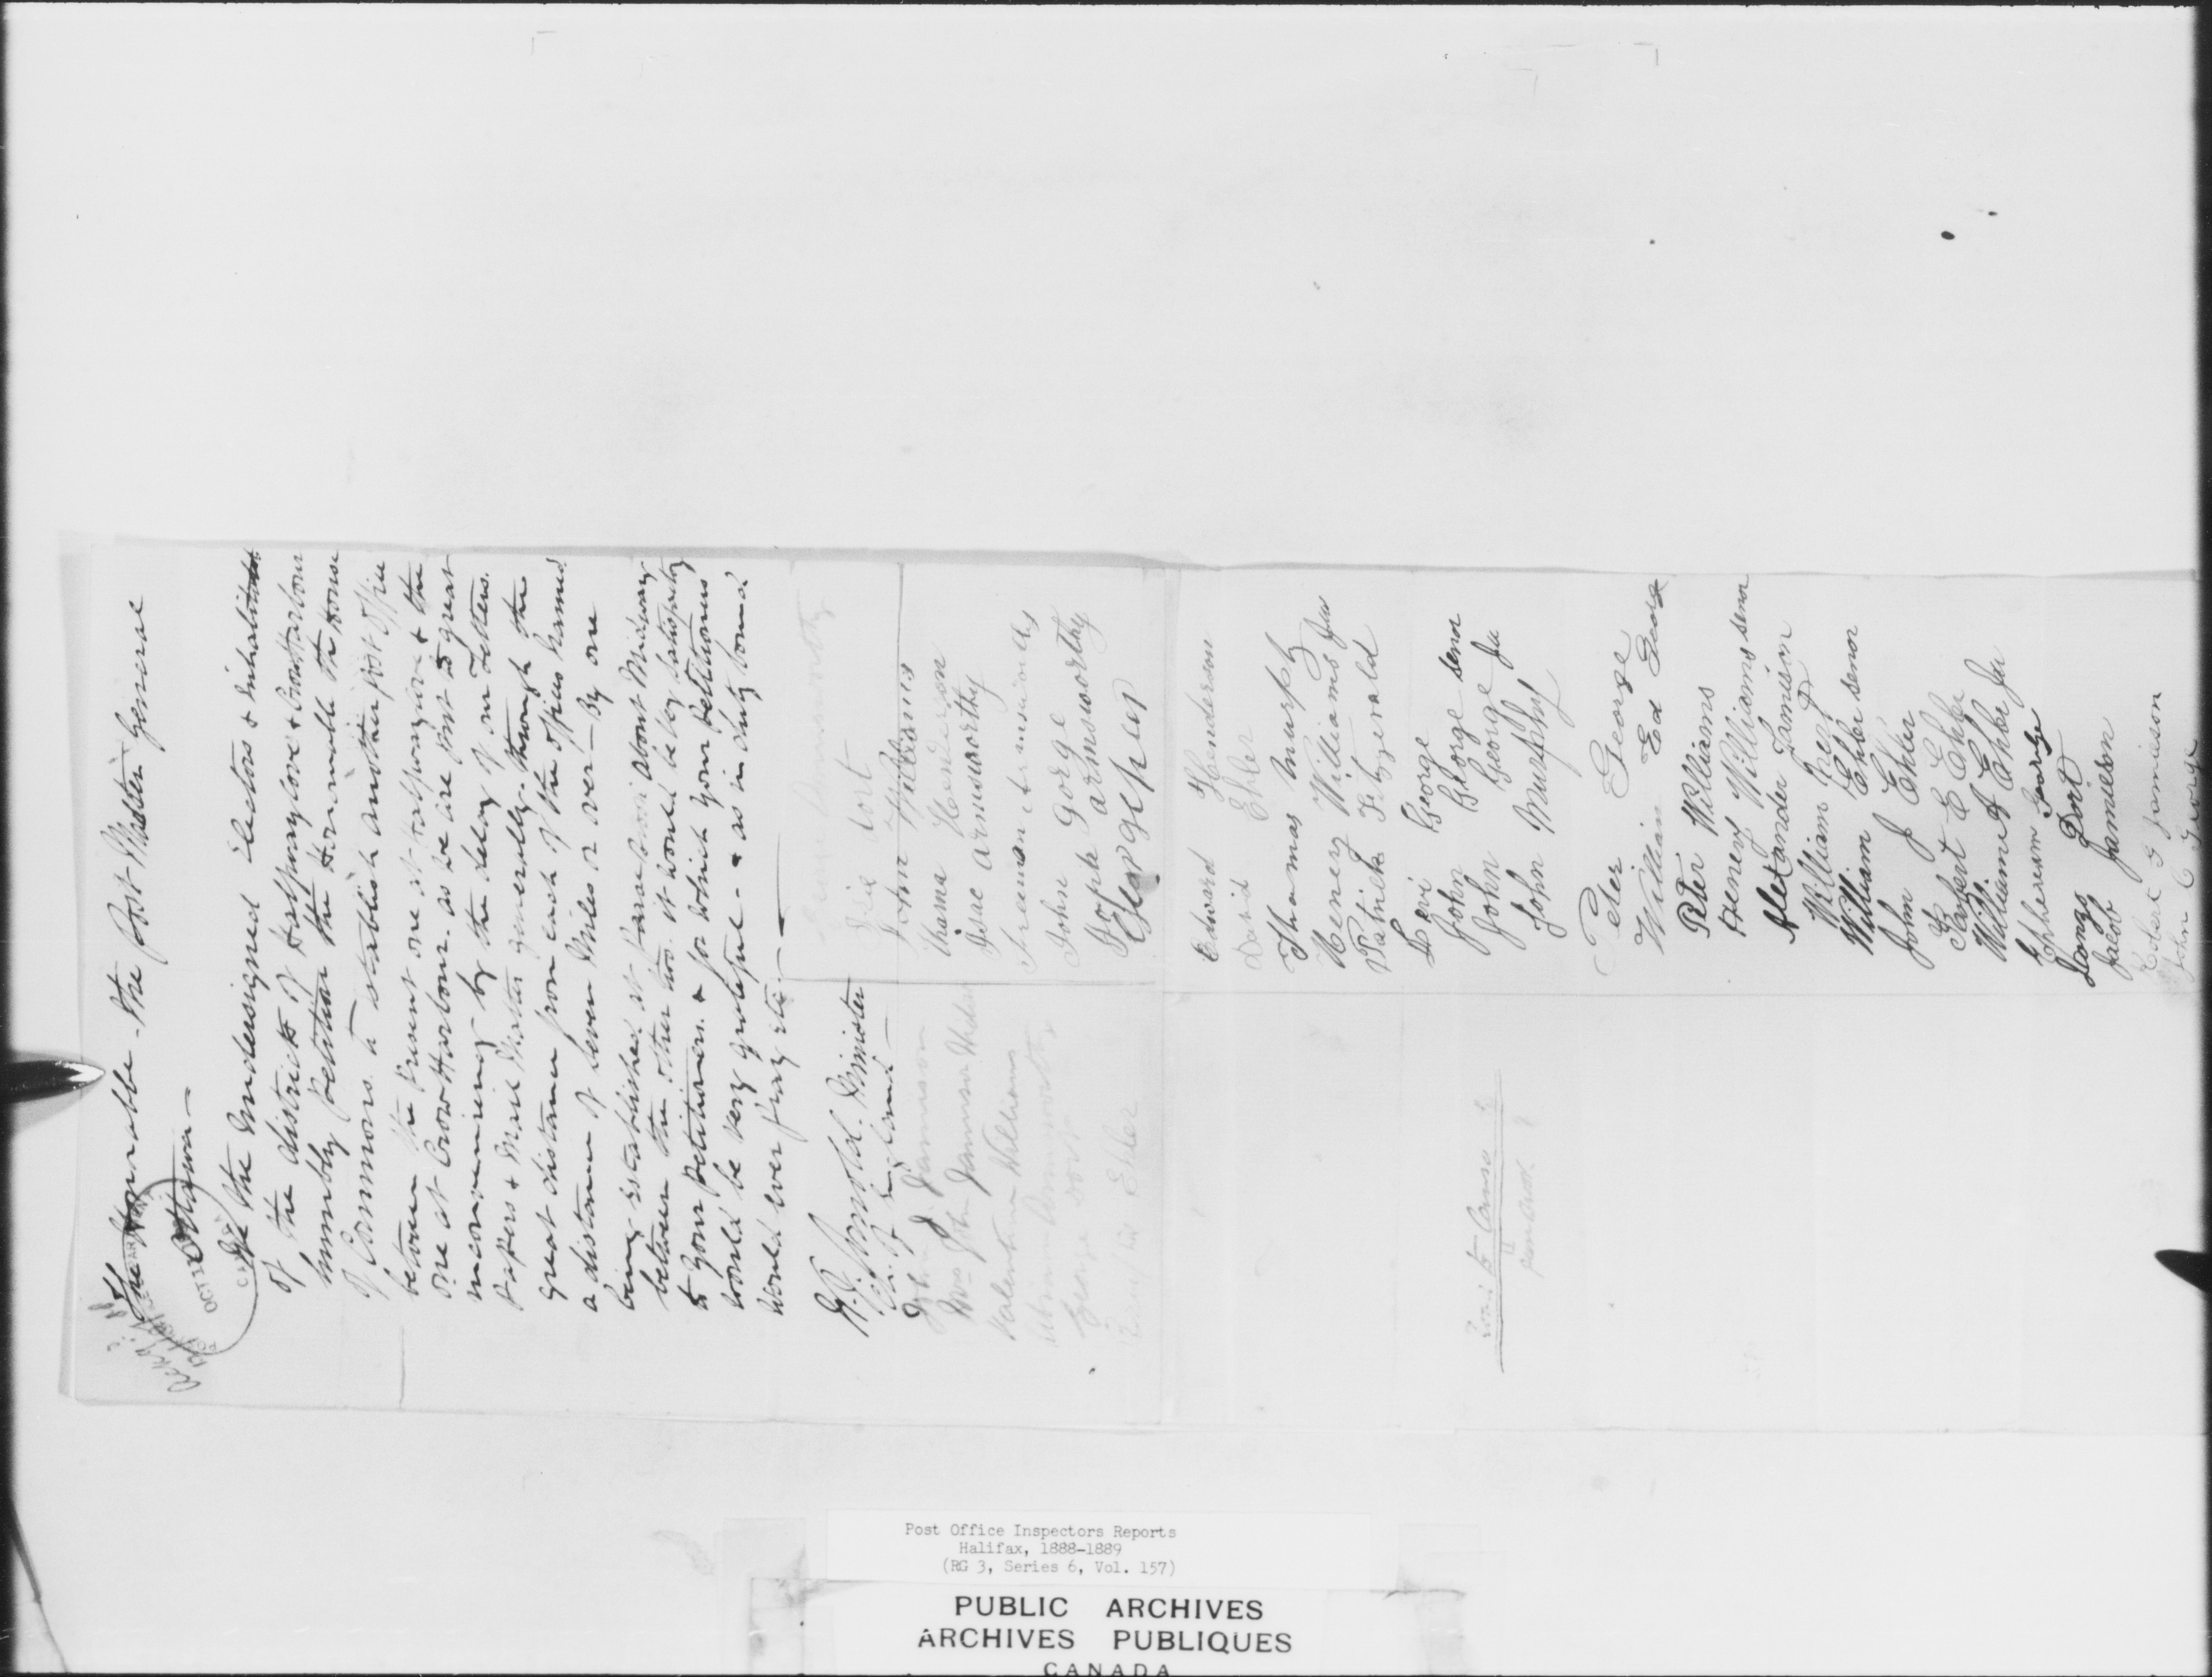 The Honorable - The Post Master General
Ottawa -
We the Undersigned Electors & inhabitants
of the districts of Halfway Cove & Crow Harbour
humbly petition the Honorable the House
of Commons to establish another post office
between the present one at & the
one at Crow Harbour. as we are put to great
inconveniency by the delay of our letters.
papers & Mail Matter generally - through the
great distance from each of the offices named
a distance of seven Miles or over - By one
being established at about Midway
between the other two. it would be by
to your petitioners. & for which your petitioners
would be very grateful - & as in duty bound
would ever pray etc -
Arnold. Minister
Ch. of England -
John Jamieson
Wm John Jamieson
Valentine Williams
Armsworthy
George Dort
Ehler
Armsworthy
Dort
John Williams
Henderson
Isac Armsworthy
Freeman Armsworthy
John Gorge
Armsworthy
Edward Henderson
David Ehler
Thomas Murphy
Henery Williams Jun
Patrick Fitzgerald
Levi George
John George Senor
John George Ju
John Murphy
Peter George
William Ed George
Peter Williams
Henery Williams Senor
Alexander Jamieson
William
William Ehler Senor
John J Ehler
E Ehler
William A Ehler Ju
Ephream George
Dort
Jacob Jamieson
Robert J Jamieson
John C George
to Canso ?
Post Office Inspectors Reports
Halifax, 1888-1889
(RG 3, Series 6, Vol. 157)
PUBLIC ARCHIVES
ARCHIVES PUBLIQUES
CANADA